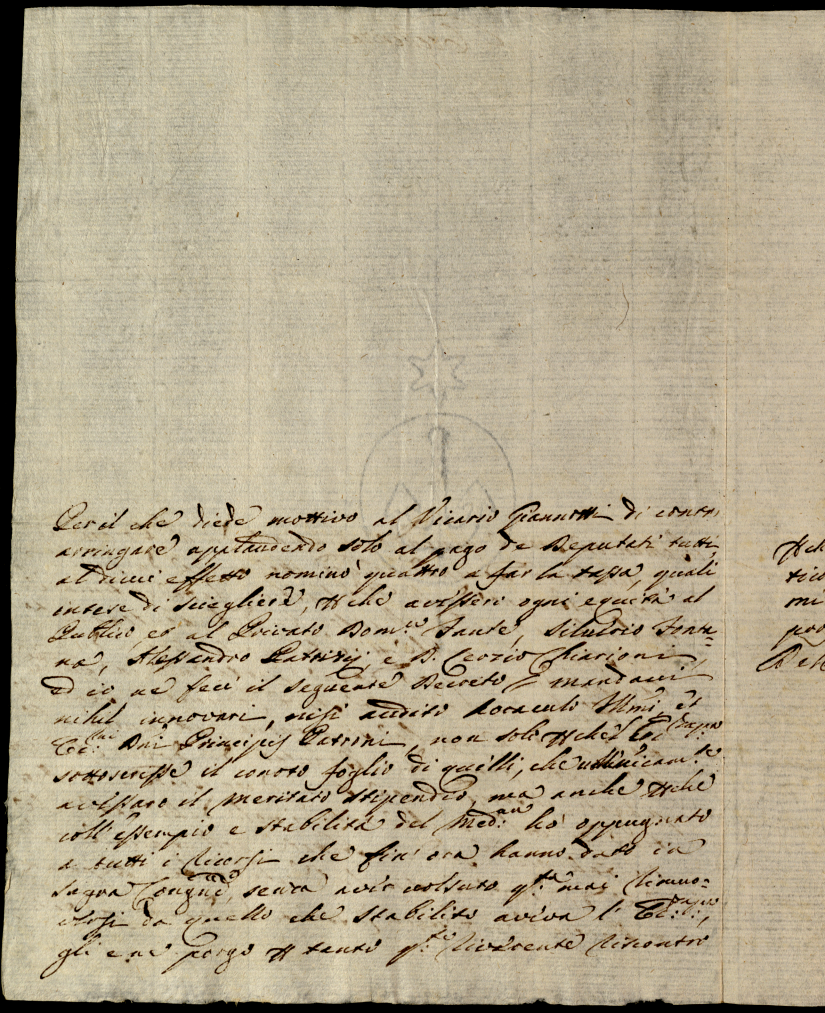 Per il che diede mottivo al Vicario Giannotti di contra
arringare applaudendo solo al pago de Deputati tutti,
al di cui effetto nominò quattro a far la tassa, quali
intese di sciegliere, acciò avessero ogni equità al
Publico, et al Privato Dom.co Sante, Silverio Fonta=
na, Alessandro Patrizij, e D. Cerzio Chiarioni,
ed io ne feci il seguente Decreto = mandavi
nihil innovari, nisi audito oraculo Illmi et
Ecc:mi Dni Principis Patroni, non solo
sottoscrisse il conoto foglio di quelli, che unicam.te
avessero il meritato stipendio, ma anche
coll'essempio e stabilità del Med:mo hò oppugnato
a tutti i ricorsi che fin'ora hanno dato in
Sagra Congne, senza aver volsuto mai rimuo=
versi da quello che stabilito aveva l'
gli e ne porgo tanto riverente riscontro
mi
pro